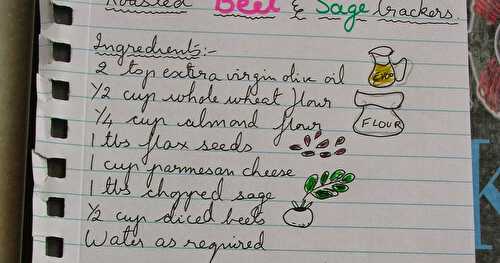 Roasted Beet & Sage Crackers.
Ingredients:-
2 tsp extra virgin olive oil
EVOO
1/2 cup whole wheat flour
1/4 cup almond flour
FLOUR
1 tbs flax seeds
1 cup parmesan cheese
1 tbs chopped sage
1/2 cup diced beets
Water as required